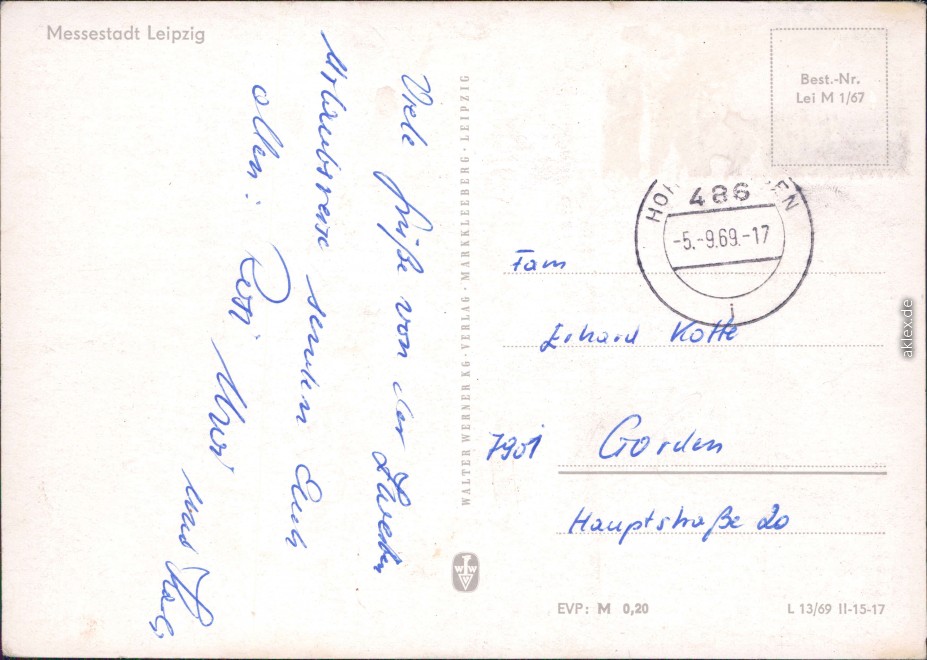 Messestadt Leipzig
Viele Grüße von der Zweiten
Urlaubsreise senden Euch
allen:
und
WALTER WERNER KG · VERLAG · MARKKLEEBERG · LEIPZIG
W W
Best.-Nr.
Lei M 1/67
486
-5.-9.69.-17
j
Fam
Erhard Kotte
7901 Gorden
Hauptstraße 20
EVP: M 0,20
L 13/69 II-15-17
aklex.de